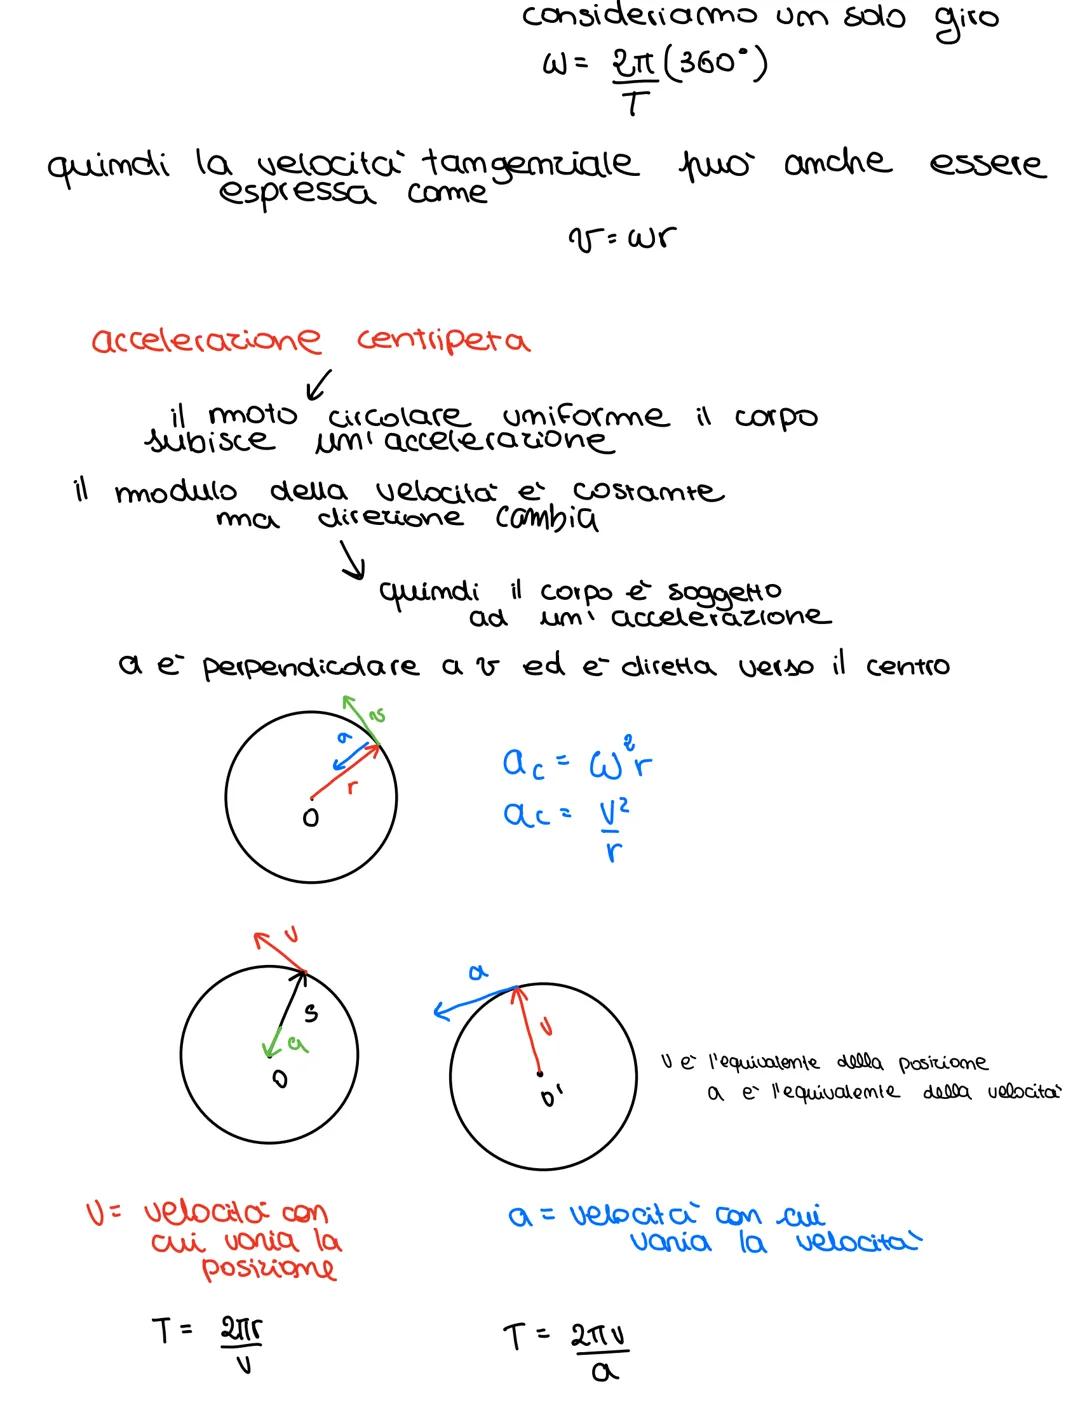 consideriamo un solo giro
ω = 2π/T (360°)
quindi la velocità tangenziale può anche essere
espressa come
v = ωr
accelerazione centripeta
il moto circolare uniforme il corpo
subisce un'accelerazione
il modulo della velocità è costante
ma direzione cambia
quindi il corpo è soggetto
ad un'accelerazione
a è perpendicolare a v ed è diretta verso il centro
v
a
r
O
ac = ω²r
ac = v²/r
v
s
a
O
a
v
O'
v è l'equivalente della posizione
a è l'equivalente della velocità
v = velocità con
cui varia la
posizione
a = velocità con cui
varia la velocità
T = 2πr/v
T = 2πv/a